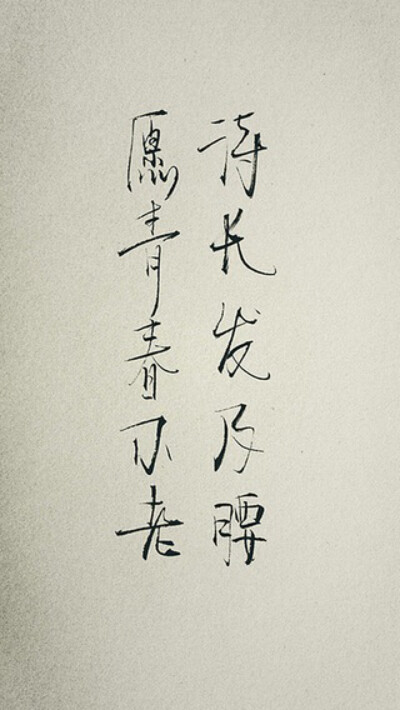 待长发及腰
愿青春不老